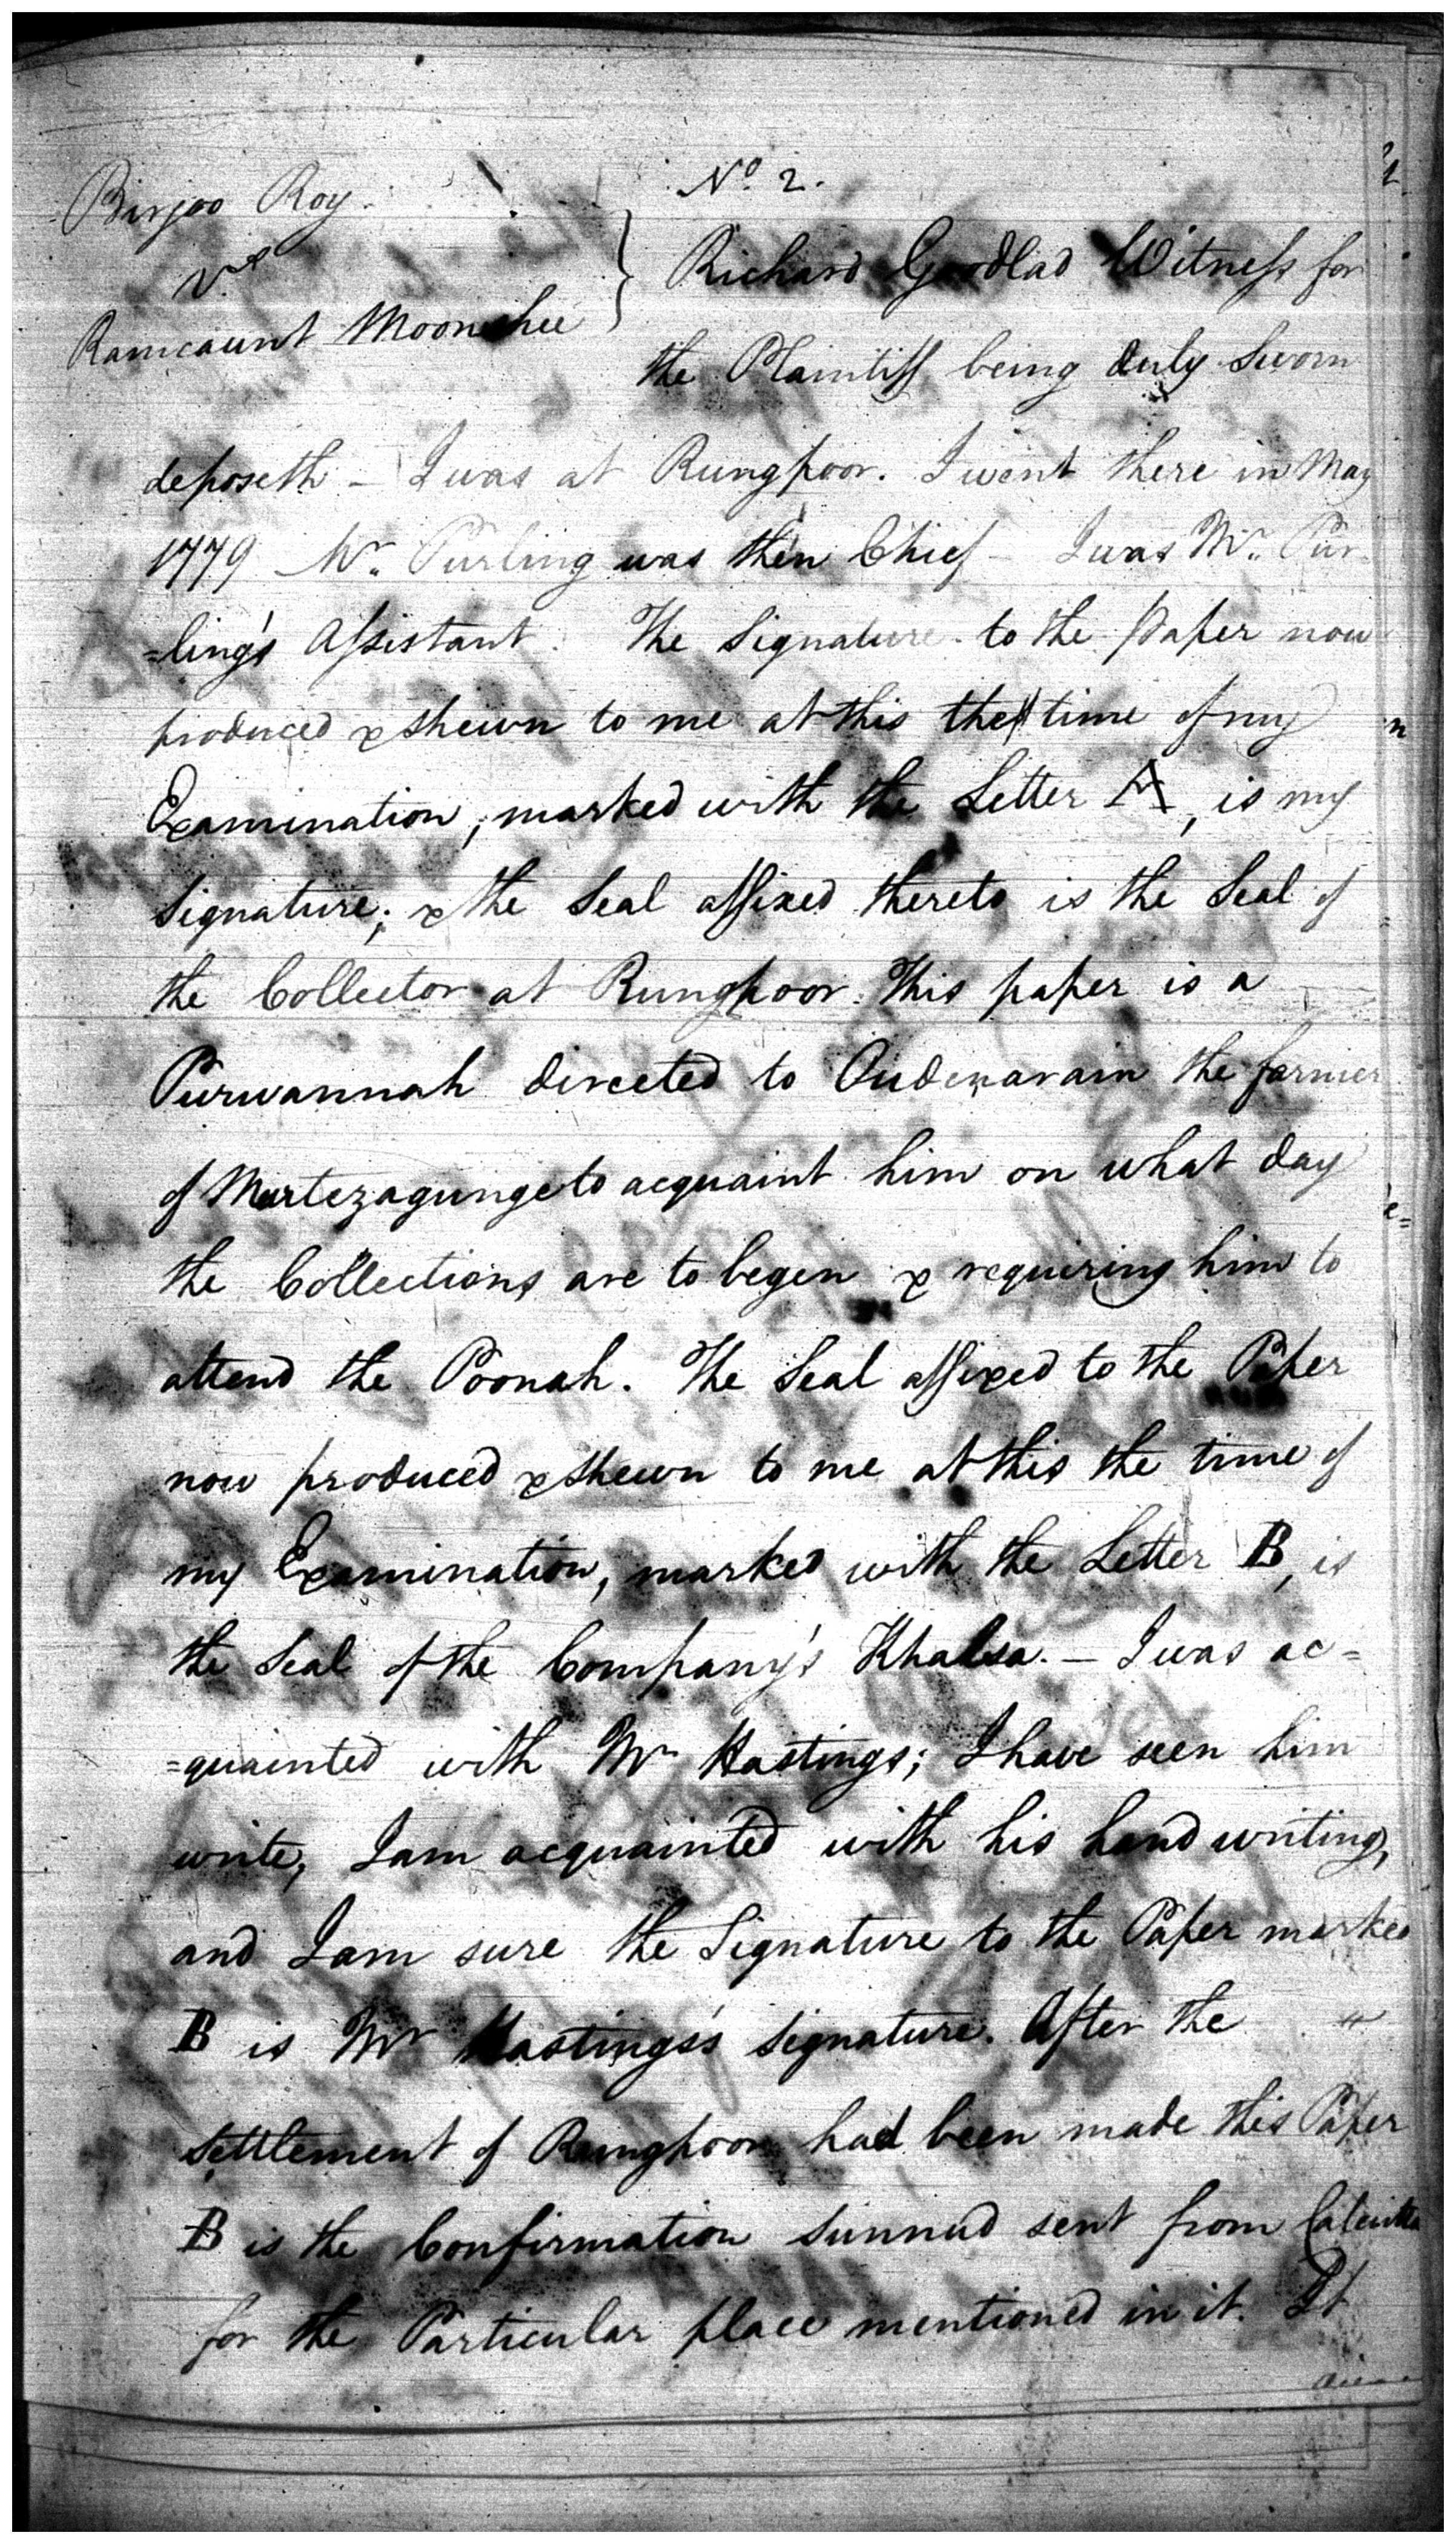 Birjoo Roy
vs
Ramcaunt Moonshee
No. 2.
Richard Goodlad Witness for
the Plaintiff being duly sworn
deposeth – I was at Rungpoor. I went there in May
1779 Mr. Purling was then Chief – I was Mr. Pur-
=ling's Assistant. The Signature to the Paper now
produced & shewn to me at this the time of my
Examination, marked with the Letter A, is my
Signature; & the Seal affixed thereto is the Seal of
the Collector at Rungpoor. This paper is a
Purwannah directed to Oudenarain the farmer
of Murtezagunge to acquaint him on what day
the Collections are to begin & requiring him to
attend the Poonah. The Seal affixed to the Paper
now produced & shewn to me at this the time of
my Examination, marked with the Letter B, is
the Seal of the Company's Khalsa. – I was ac=
=quainted with Mr Hastings; I have seen him
write, I am acquainted with his hand writing,
and I am sure the Signature to the Paper marked
B is Mr Hastings's signature. After the
settlement of Rungpoor had been made this Paper
B is the Confirmation Sunnud sent from Calcutta
for the Particular place mentioned in it. It